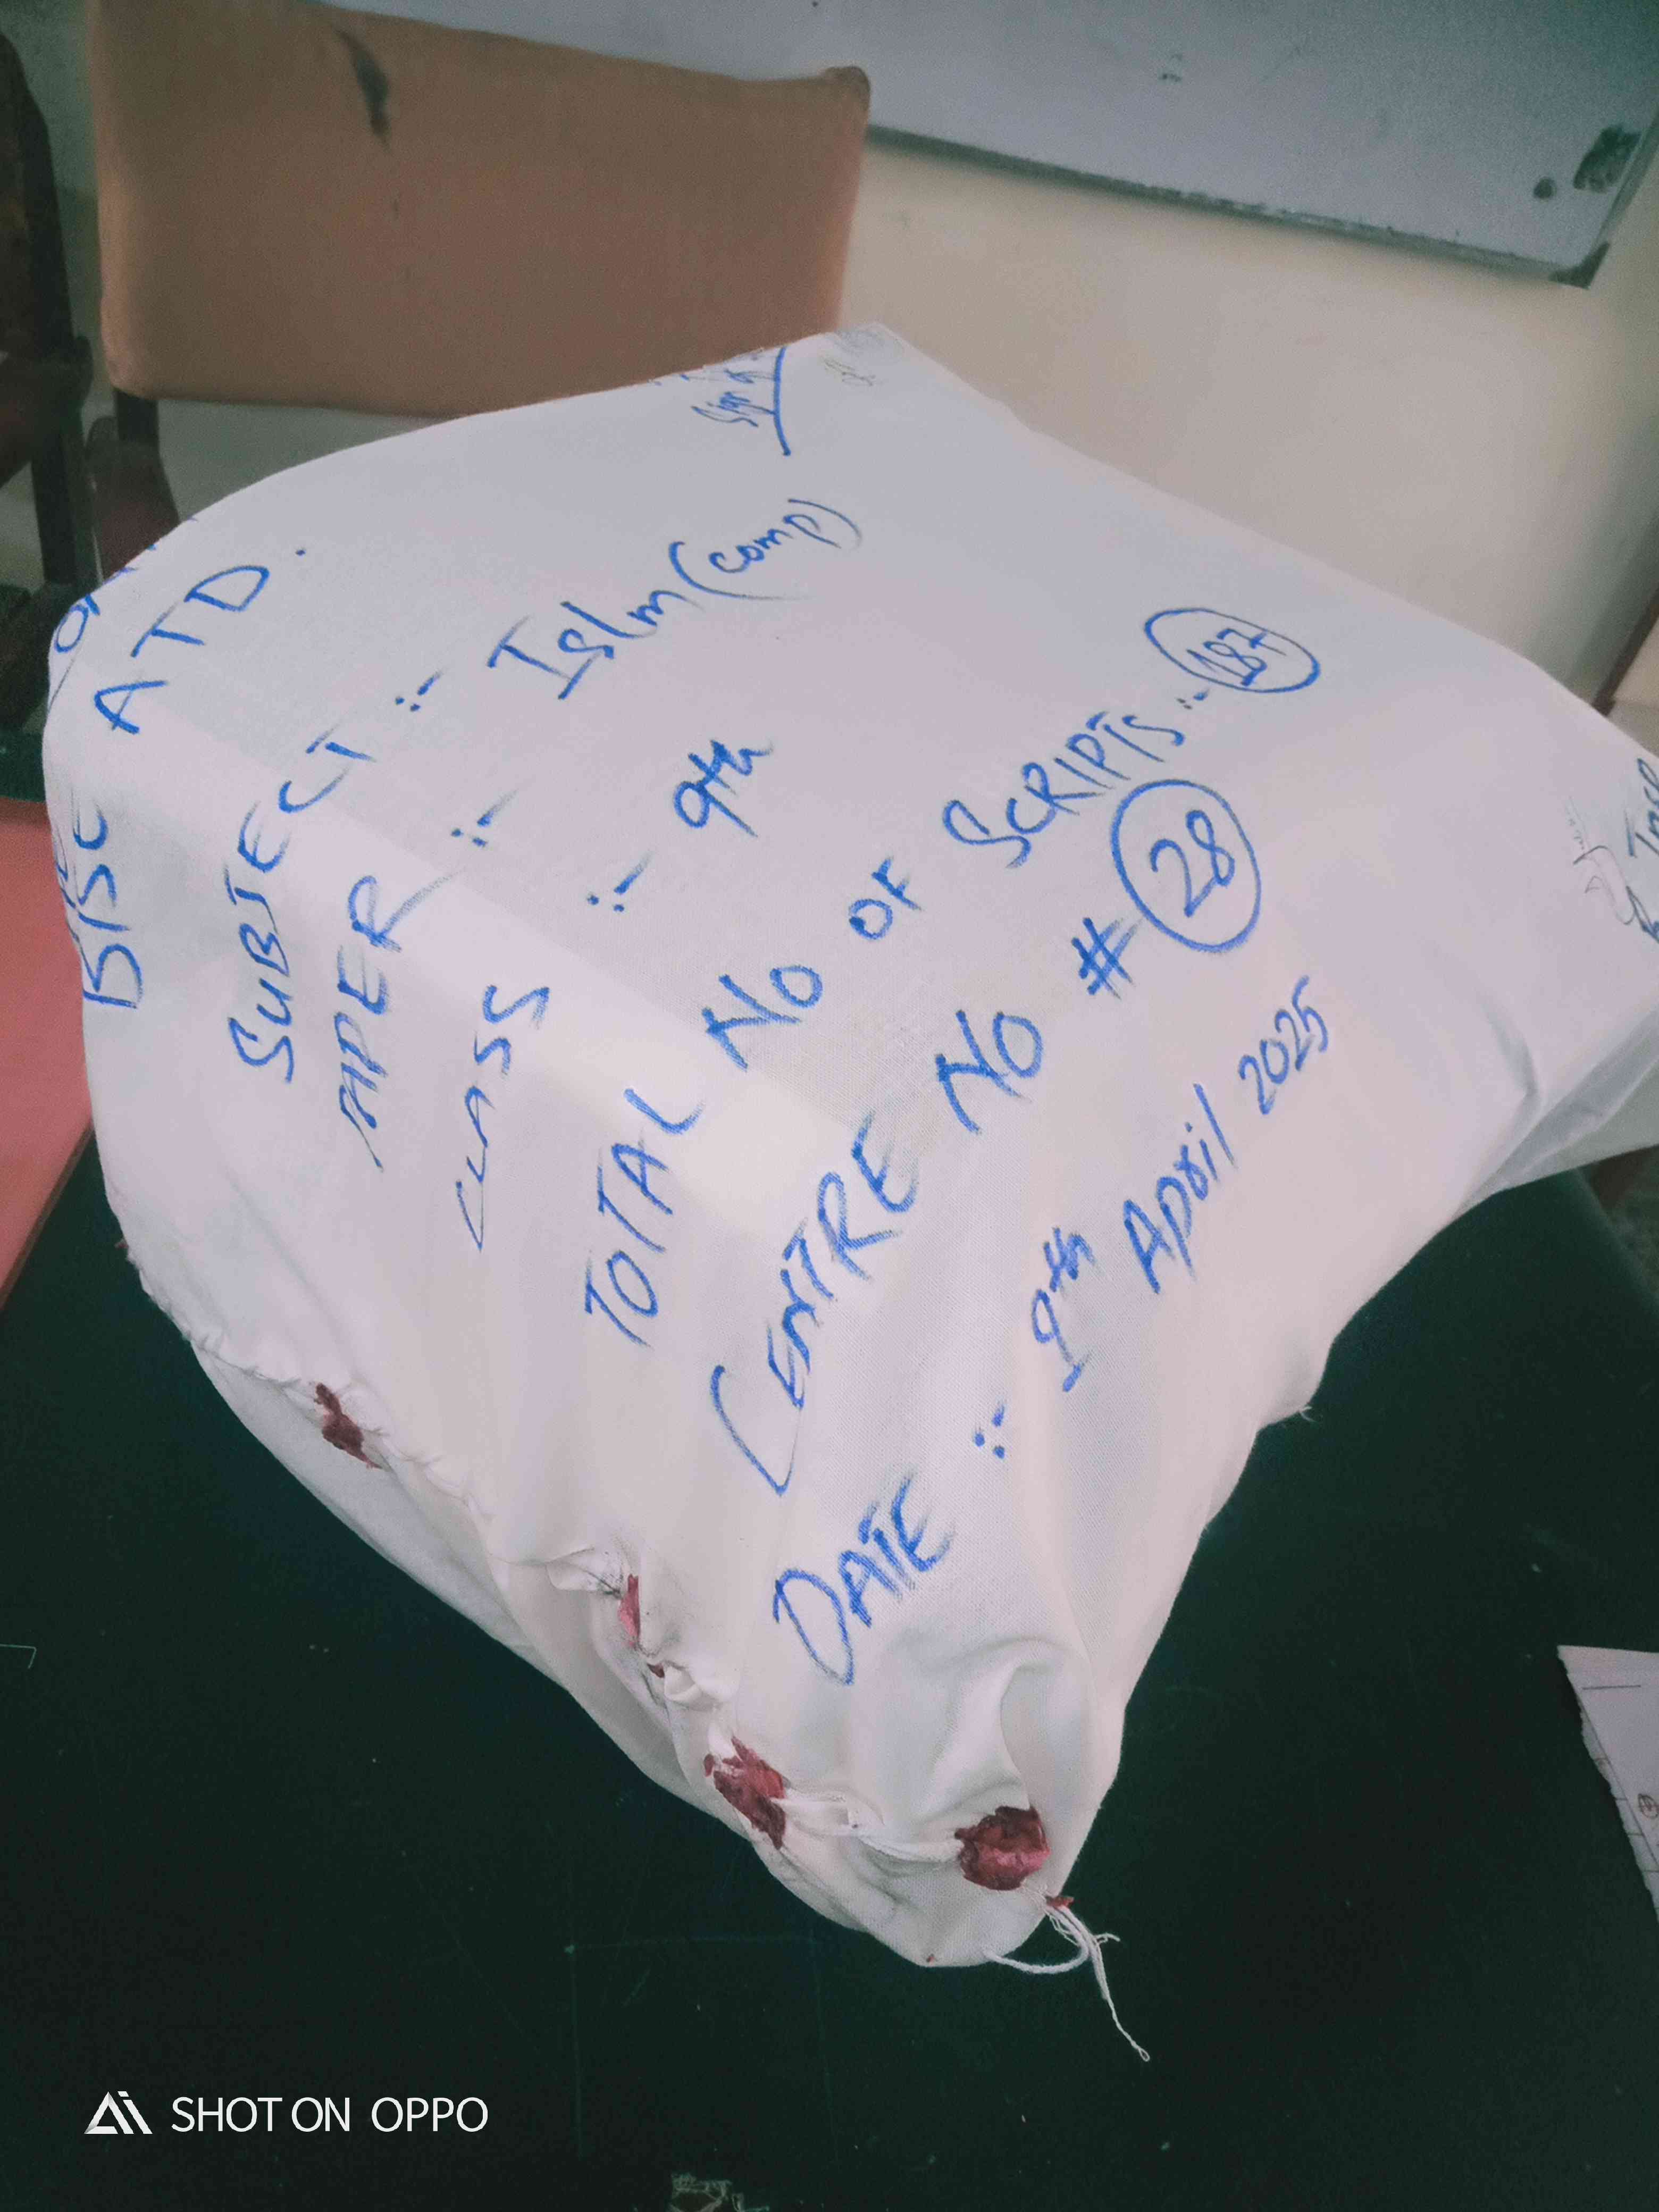 BISE ATD.
SUBJECT :- Islm (comp)
PAPER :-
CLASS :- 9th
TOTAL No OF SCRIPTS :- 187
CENTRE No # 28
DATE :- 9th April 2025
SHOT ON OPPO